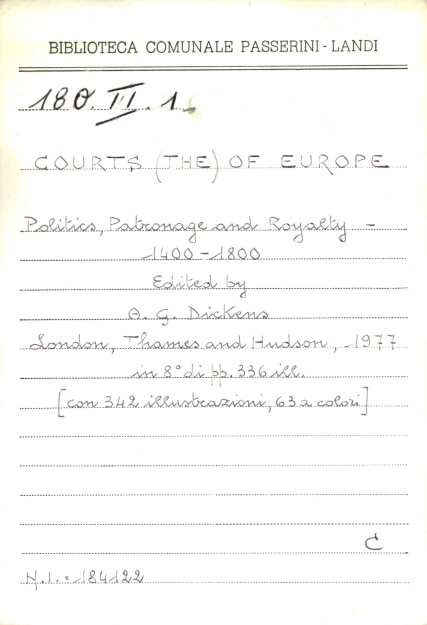 BIBLIOTECA COMUNALE PASSERINI-LANDI
180.II.1.
COURTS (THE) OF EUROPE
Politics, Patronage and Royalty -
1400-1800
Edited by
A. G. Dickens
London, Thames and Hudson, 1977
in 8° di pp. 336 ill.
[con 342 illustrazioni, 63 a colori]
C
N.I.=184122